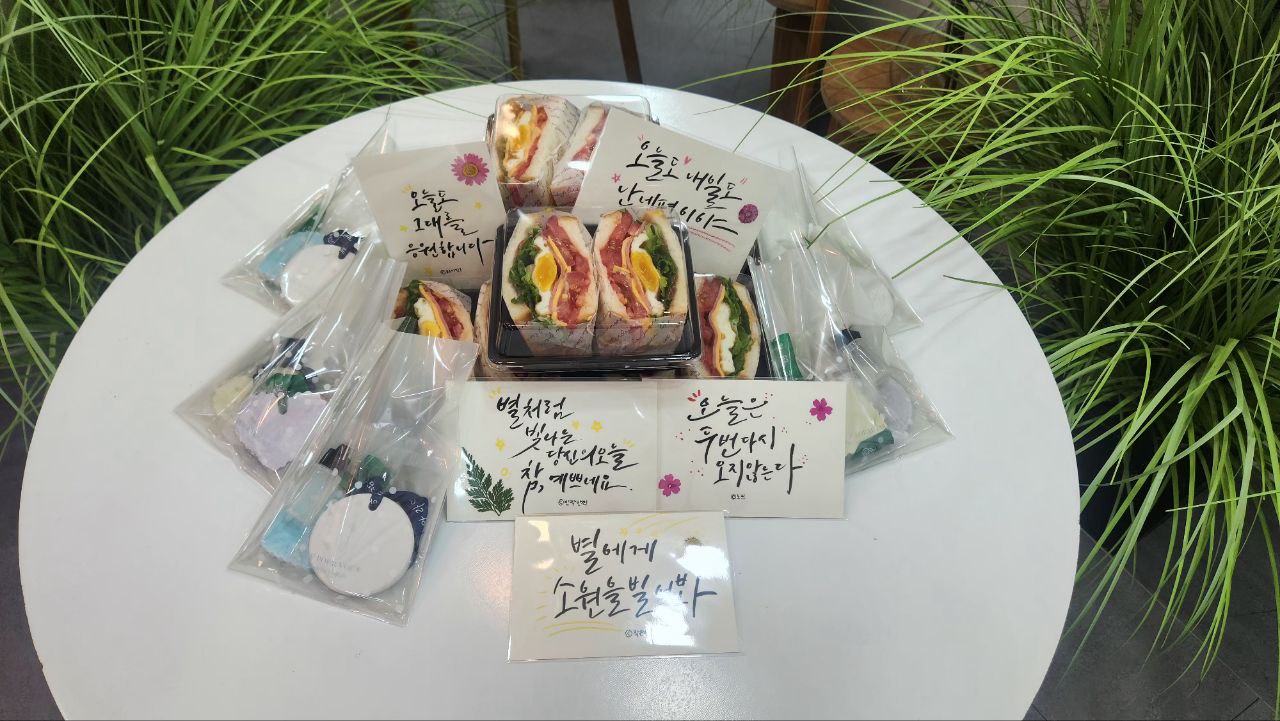 오늘도
그대를
응원합니다
오늘도 내일도
난 네편이이스
별처럼
빛나는
당신의오늘
참, 예쁘네요.
오늘은
두번다시
오지않는다
별에게
소원을빌어봐